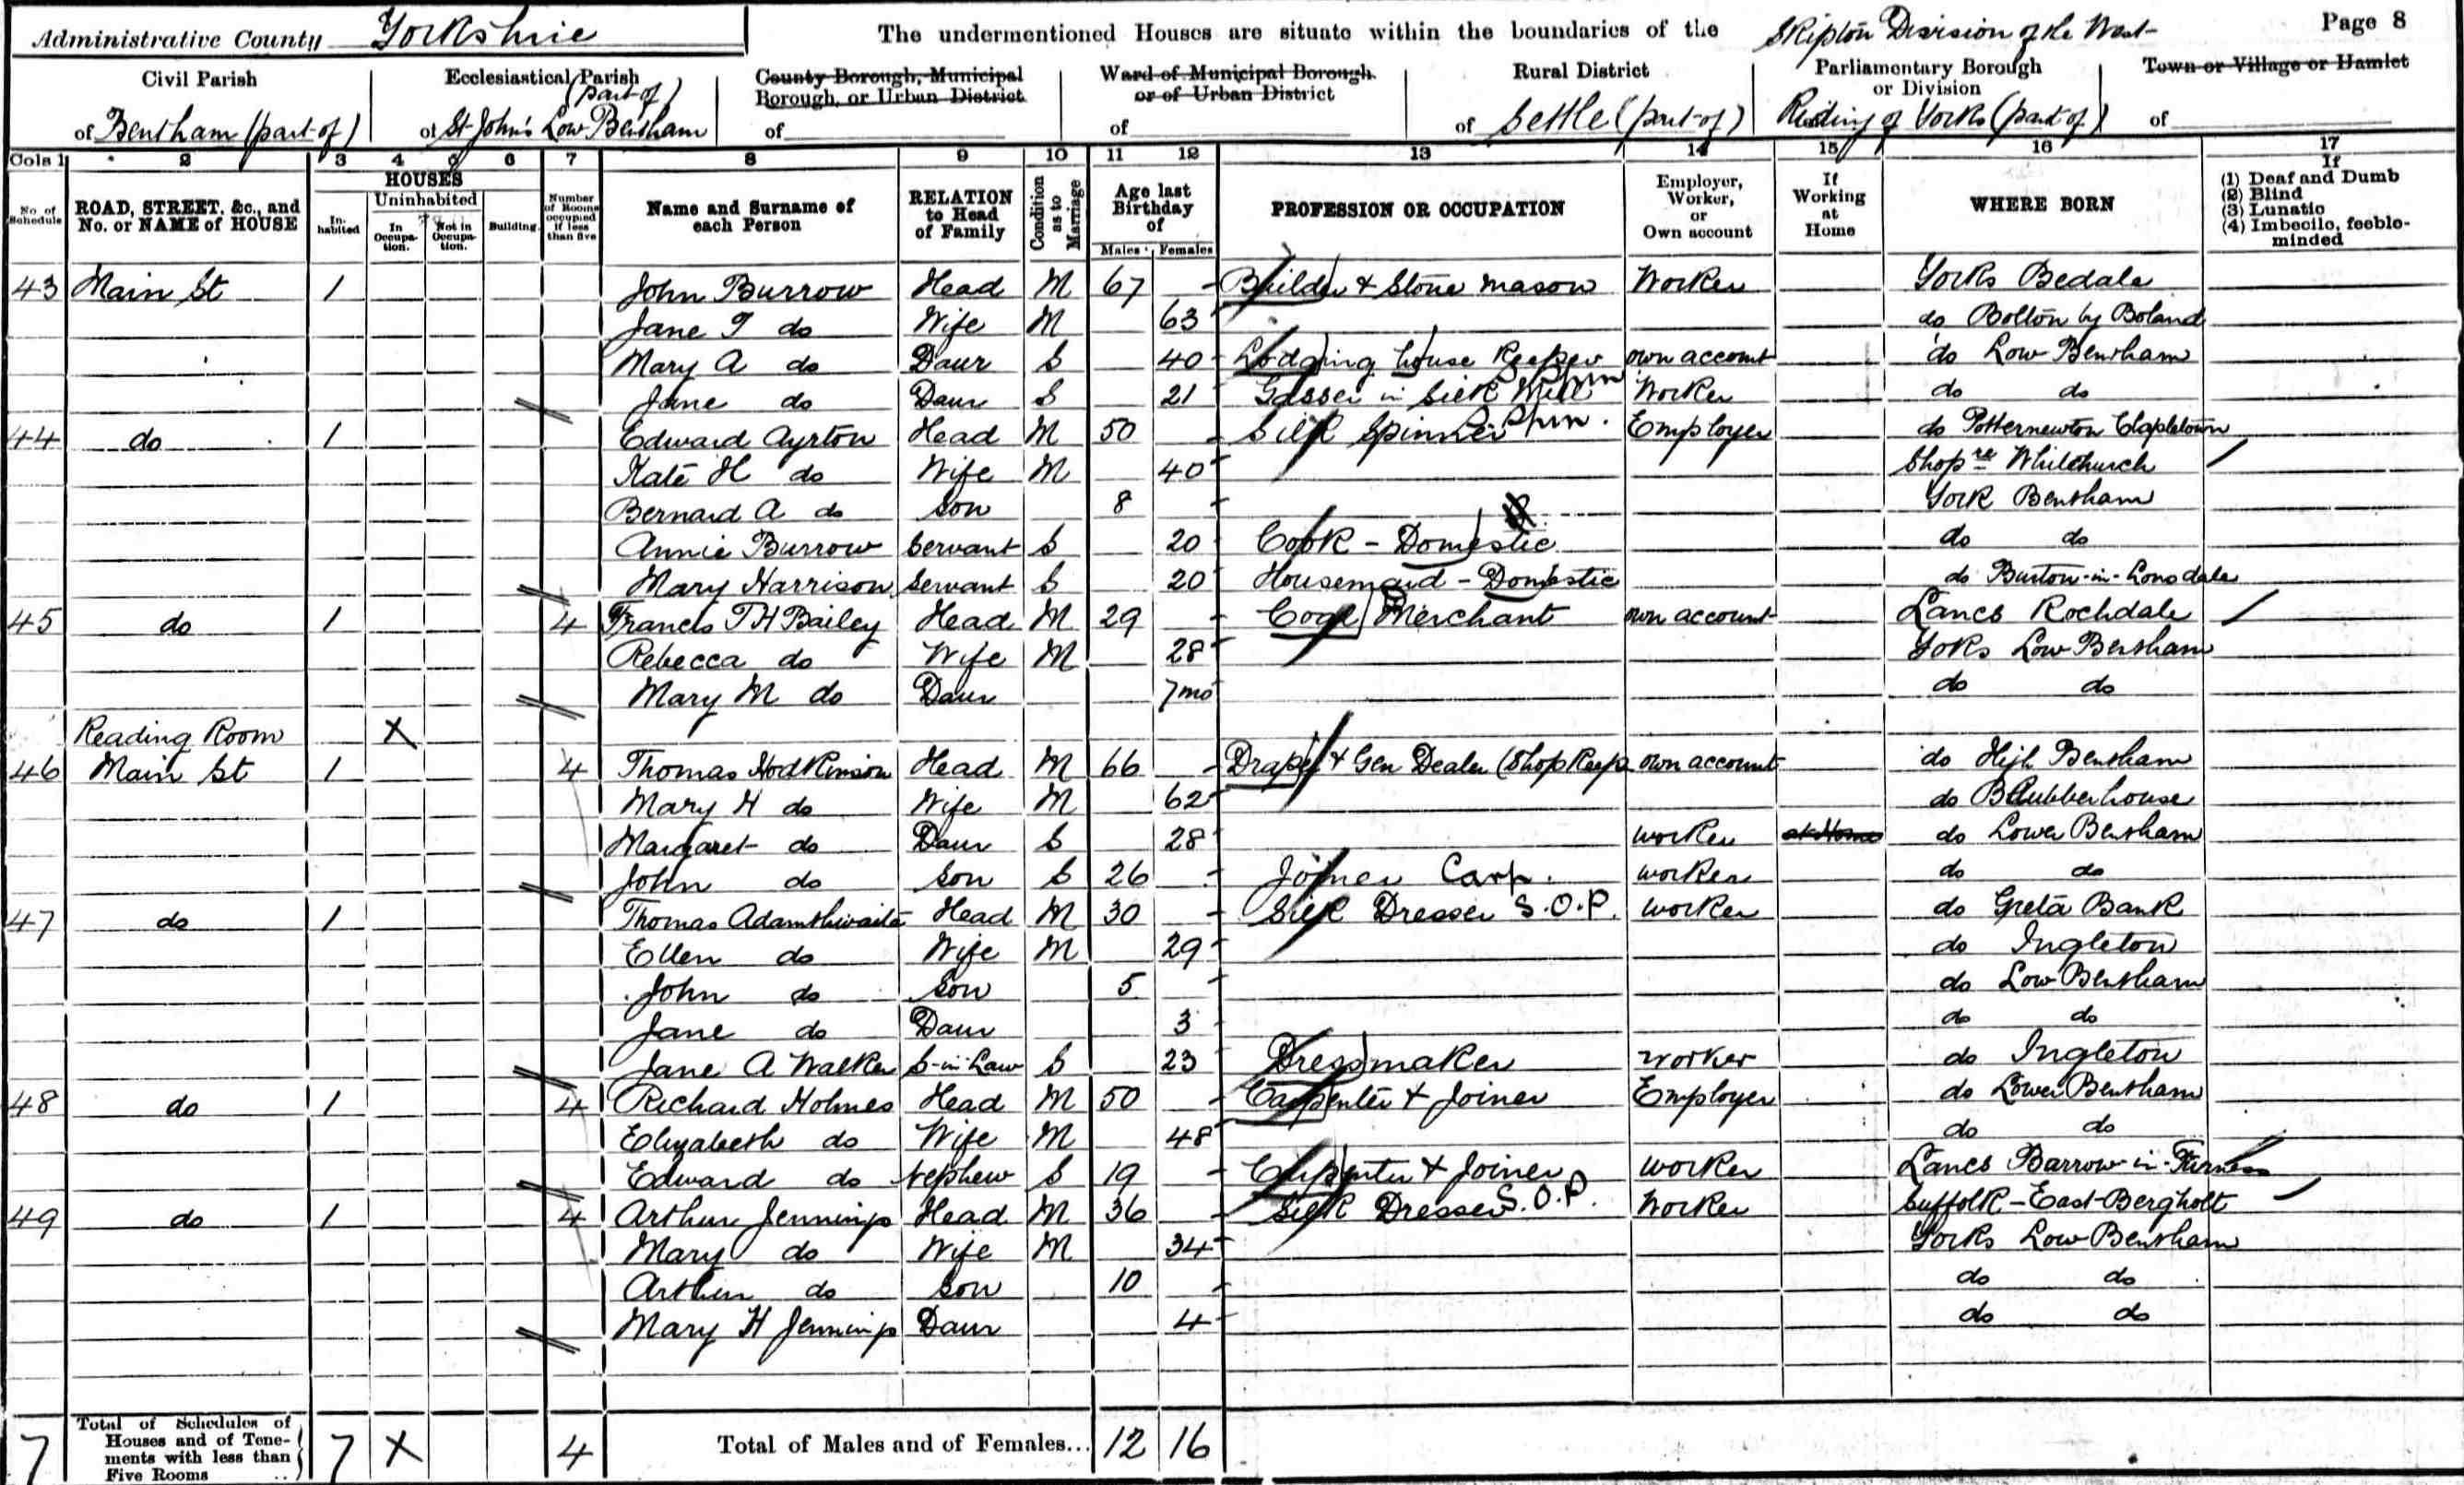 Administrative County Yorkshire The undermentioned Houses are situate within the boundaries of the Skipton Division of the West Page 8
Civil Parish Ecclesiastical Parish County Borough, Municipal Borough, or Urban District Ward of Municipal Borough or of Urban District Rural District Parliamentary Borough or Division Town or Village or Hamlet
of Bentham (part of) of St John's Low Bentham (part of) of of of Settle (part of) Riding of Yorks (part of) of
Cols 1 2 3 4 5 6 7 8 9 10 11 12 13 14 15 16 17
No. of Schedule ROAD, STREET, &c., and No. or NAME of HOUSE HOUSES Inhabited Uninhabited In Occupation. Not in Occupation. Building. Number of Rooms occupied if less than five Name and Surname of each Person RELATION to Head of Family Condition as to Marriage Age last Birthday of Males Females PROFESSION OR OCCUPATION Employer, Worker, or Own account If Working at Home WHERE BORN If (1) Deaf and Dumb (2) Blind (3) Lunatic (4) Imbecile, feeble-minded
43 Main St 1 John Burrow Head M 67 Builder & Stone Mason Worker Yorks Bedale
Jane T do Wife M 63 do Bolton by Boland
Mary A do Daur S 40 Lodging house Keeper own account do Low Bentham
Jane do Daur S 21 Gasser in Silk Mill Worker do do
44 do 1 Edward Ayrton Head M 50 Silk Spinner Spin. Employer do Potternewton Clapletown
Kate H do Wife M 40 Shopre Whitchurch
Bernard A do Son 8 York Bentham
Annie Burrow Servant S 20 Cook - Domestic do do
Mary Harrison Servant S 20 Housemaid - Domestic do Burton-in-Lonsdale
45 do 1 4 Francis T H Bailey Head M 29 Coal Merchant own account Lancs Rochdale
Rebecca do Wife M 28 Yorks Low Bentham
Mary M do Daur 7mo do do
Reading Room X
46 Main St 1 4 Thomas Hodkinson Head M 66 Draper & Gen Dealer (Shop Keep own account do High Bentham
Mary H do Wife M 62 do Blubberhouse
Margaret do Daur S 28 worker at Home do Lower Bentham
John do Son S 26 Joiner Carp. worker do do
47 do 1 Thomas Adamthwaite Head M 30 Silk Dresser S.O.P. worker do Greta Bank
Ellen do Wife M 29 do Ingleton
John do Son 5 do Low Bentham
Jane do Daur 3 do do
Jane A Walker S-in-Law S 23 Dressmaker worker do Ingleton
48 do 1 4 Richard Holmes Head M 50 Carpenter & Joiner Employer do Lower Bentham
Elizabeth do Wife M 48 do do
Edward do Nephew S 19 Carpenter & Joiner worker Lancs Barrow-in-Furness
49 do 1 4 Arthur Jennings Head M 36 Silk Dresser S.O.P. Worker Suffolk - East Bergholt
Mary do Wife M 34 Yorks Low Bentham
Arthur do Son 10 do do
Mary H Jennings Daur 4 do do
7 Total of Schedules of Houses and of Tenements with less than Five Rooms 7 X 4 Total of Males and of Females... 12 16